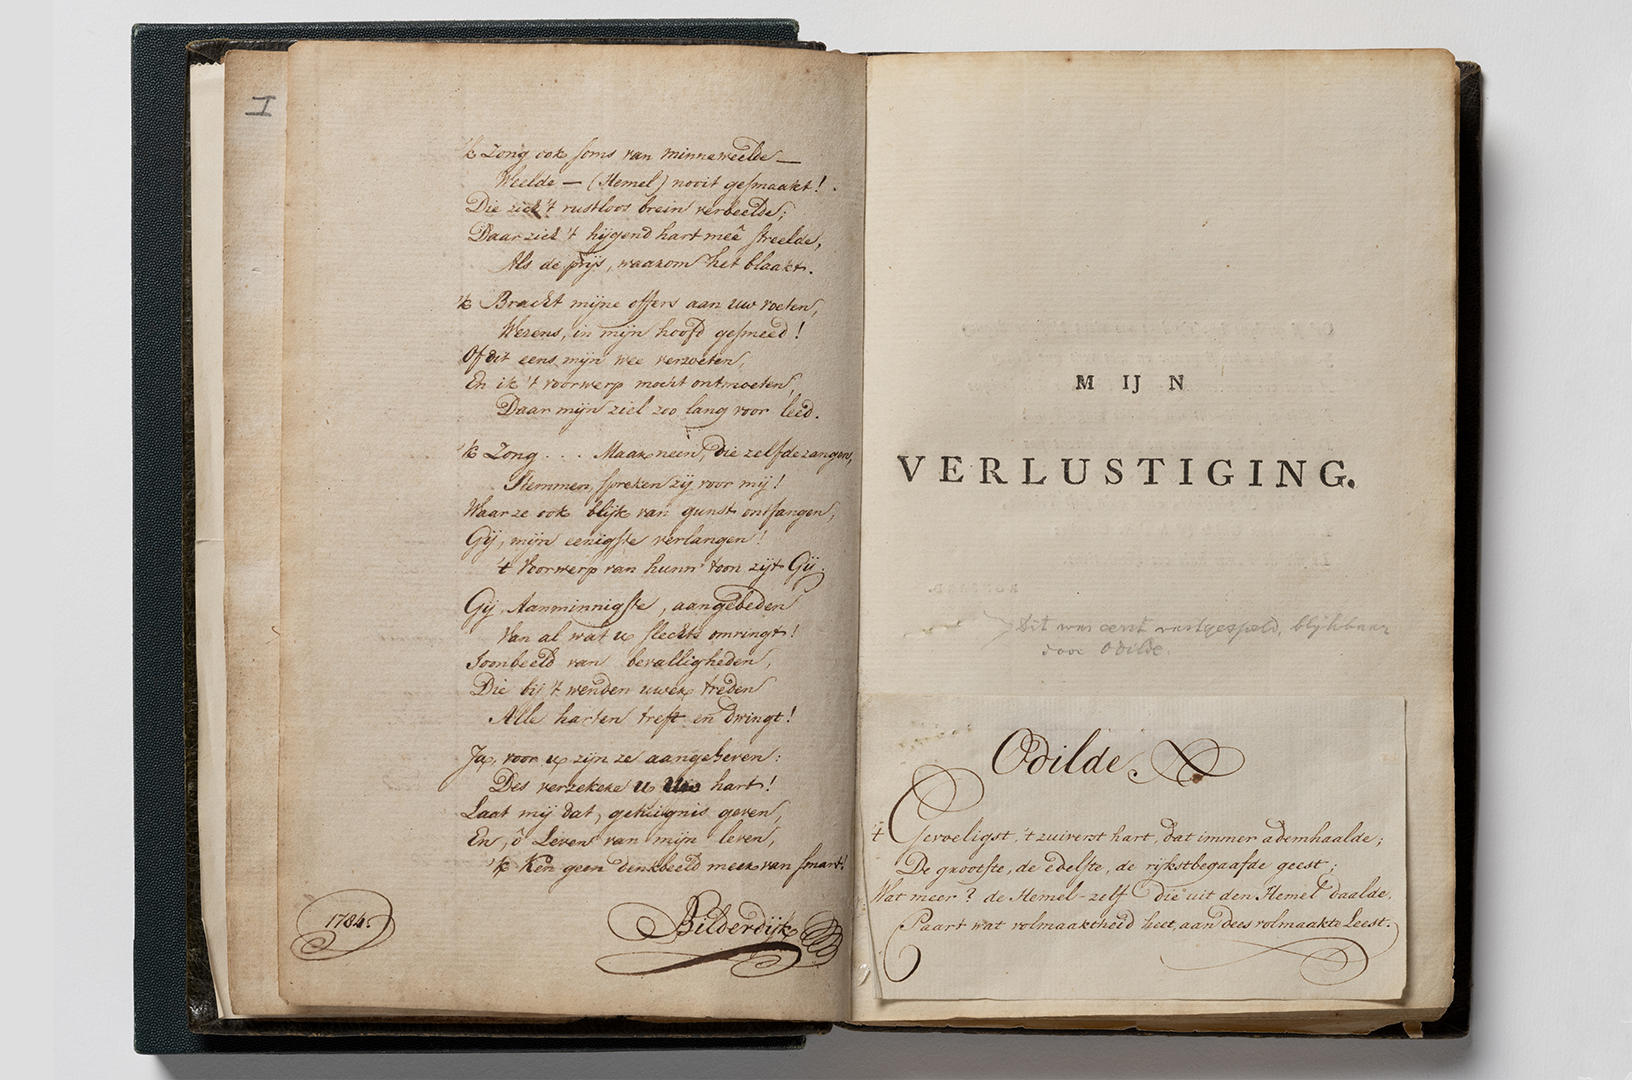 I
'k Zong ook soms van minneweelde —
Weelde — (Hemel) nooit gesmaakt!
Die zich 't rustloos brein verbeeldde;
Daar zich 't hijgend hart meê streelde,
Als de prijs, waarom het blaakt.
'k Bracht mijne offers aan uw voeten,
Wezens, in mijn hoofd gesmeed!
Of dit eens mijn wee verzoeten,
En ik 't voorwerp mocht ontmoeten,
Daar mijn ziel zoo lang voor leed.
'k Zong . . . Maar neen, die zelfde zangen,
Stemmen, spreken zij voor mij!
Waar ze ook blijk van gunst ontfangen,
Gij, mijn eenigste verlangen!
't Voorwerp van hunn' toon zijt Gij.
Gij Aanminnigste, aangebeden
Van al wat u slechts omringt!
Toonbeeld van bevalligheden,
Die bij 't wenden uwer treden
Alle harten treft en dwingt!
Ja, voor u zijn ze aangeheven:
Des verzekere u hart!
Laat mij dat getuignis geven,
En, ô Leven van mijn leven,
'k Ken geen denkbeeld meer van smart!
1784.
Bilderdijk
MIJN
VERLUSTIGING.
Dit was eerst vastgespeld, blijkbaar
door Odilde.
Odilde.
't Gevoeligst, 't zuiverst hart, dat immer ademhaalde;
De grootste, de edelste, de rijkstbegaafde geest;
Wat meer? de Hemel-zelf die uit den Hemel daalde,
Paart wat volmaaktheid heet, aan dees volmaakte Leest.